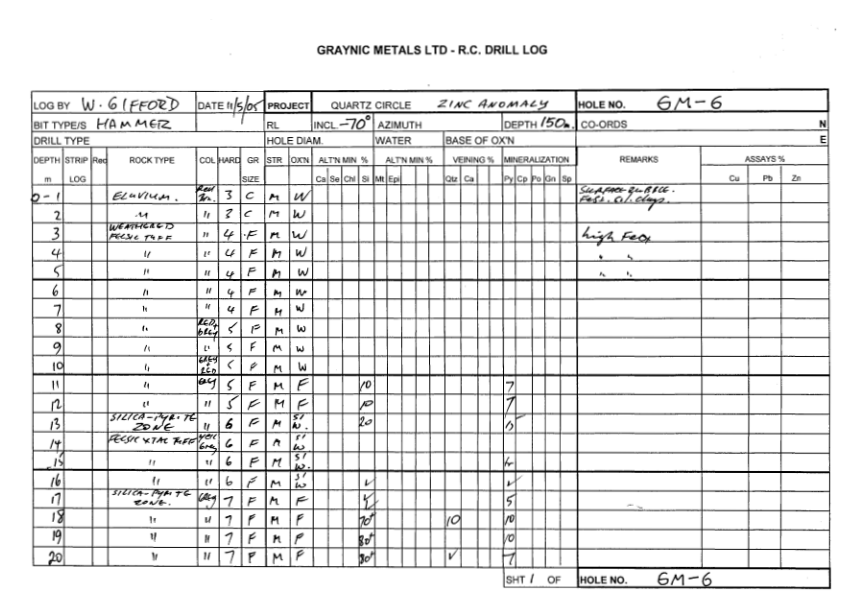 GRAYNIC METALS LTD - R.C. DRILL LOG
LOG BY W. GIFFORD DATE 11/5/05 PROJECT QUARTZ CIRCLE ZINC ANOMALY HOLE NO. GM-6
BIT TYPE/S HAMMER RL INCL. -70° AZIMUTH DEPTH 150m. CO-ORDS N
DRILL TYPE HOLE DIAM. WATER BASE OF OX'N E
DEPTH STRIP Rec ROCK TYPE COL HARD GR STR OX'N ALT'N MIN % ALT'N MIN % VEINING % MINERALIZATION REMARKS ASSAYS %
m LOG SIZE Ca Se Chl Si Mt Epi Qtz Ca Py Cp Po Gn Sp Cu Pb Zn
0-1 ELUVIUM. Red Bn. 3 C M W
2 " " 3 C M W
3 WEATHERED FELSIC TUFF " 4 F M W high Feox
4 " " 4 F M W " "
5 " " 4 F M W " "
6 " " 4 F M W
7 " " 4 F M W
8 " RED+ GREY 5 F M W
9 " " 5 F M W
10 " GREY + RED 5 F M W
11 " Grey 5 F M F 10 7
12 " " 5 F M F 10 7
13 SILICA-PYRITE ZONE " 6 F M SI W. 20
14 FELSIC XTAL TUFF Grey 6 F M SI W
15 " " 6 F M SI W.
16 " " 6 F M SI W ✓ ✓
17 SILICA-PYRITE ZONE. Grey 7 F M F 5
18 " " 7 F M F 70+ 10 10
19 " " 7 F M F 80+ 10
20 " " 7 F M F 80+ ✓ 7
SHT 1 OF HOLE NO. GM-6